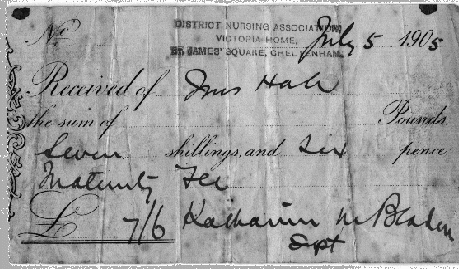 No
DISTRICT NURSING ASSOCIATION,
VICTORIA HOME,
ST JAMES' SQUARE, CHELTENHAM.
July 5 1905
Received of Mrs Hall
the sum of Pounds
Seven shillings, and Six pence
Maternity Fee
£ 7/6 Katharine M Bladon
Supt